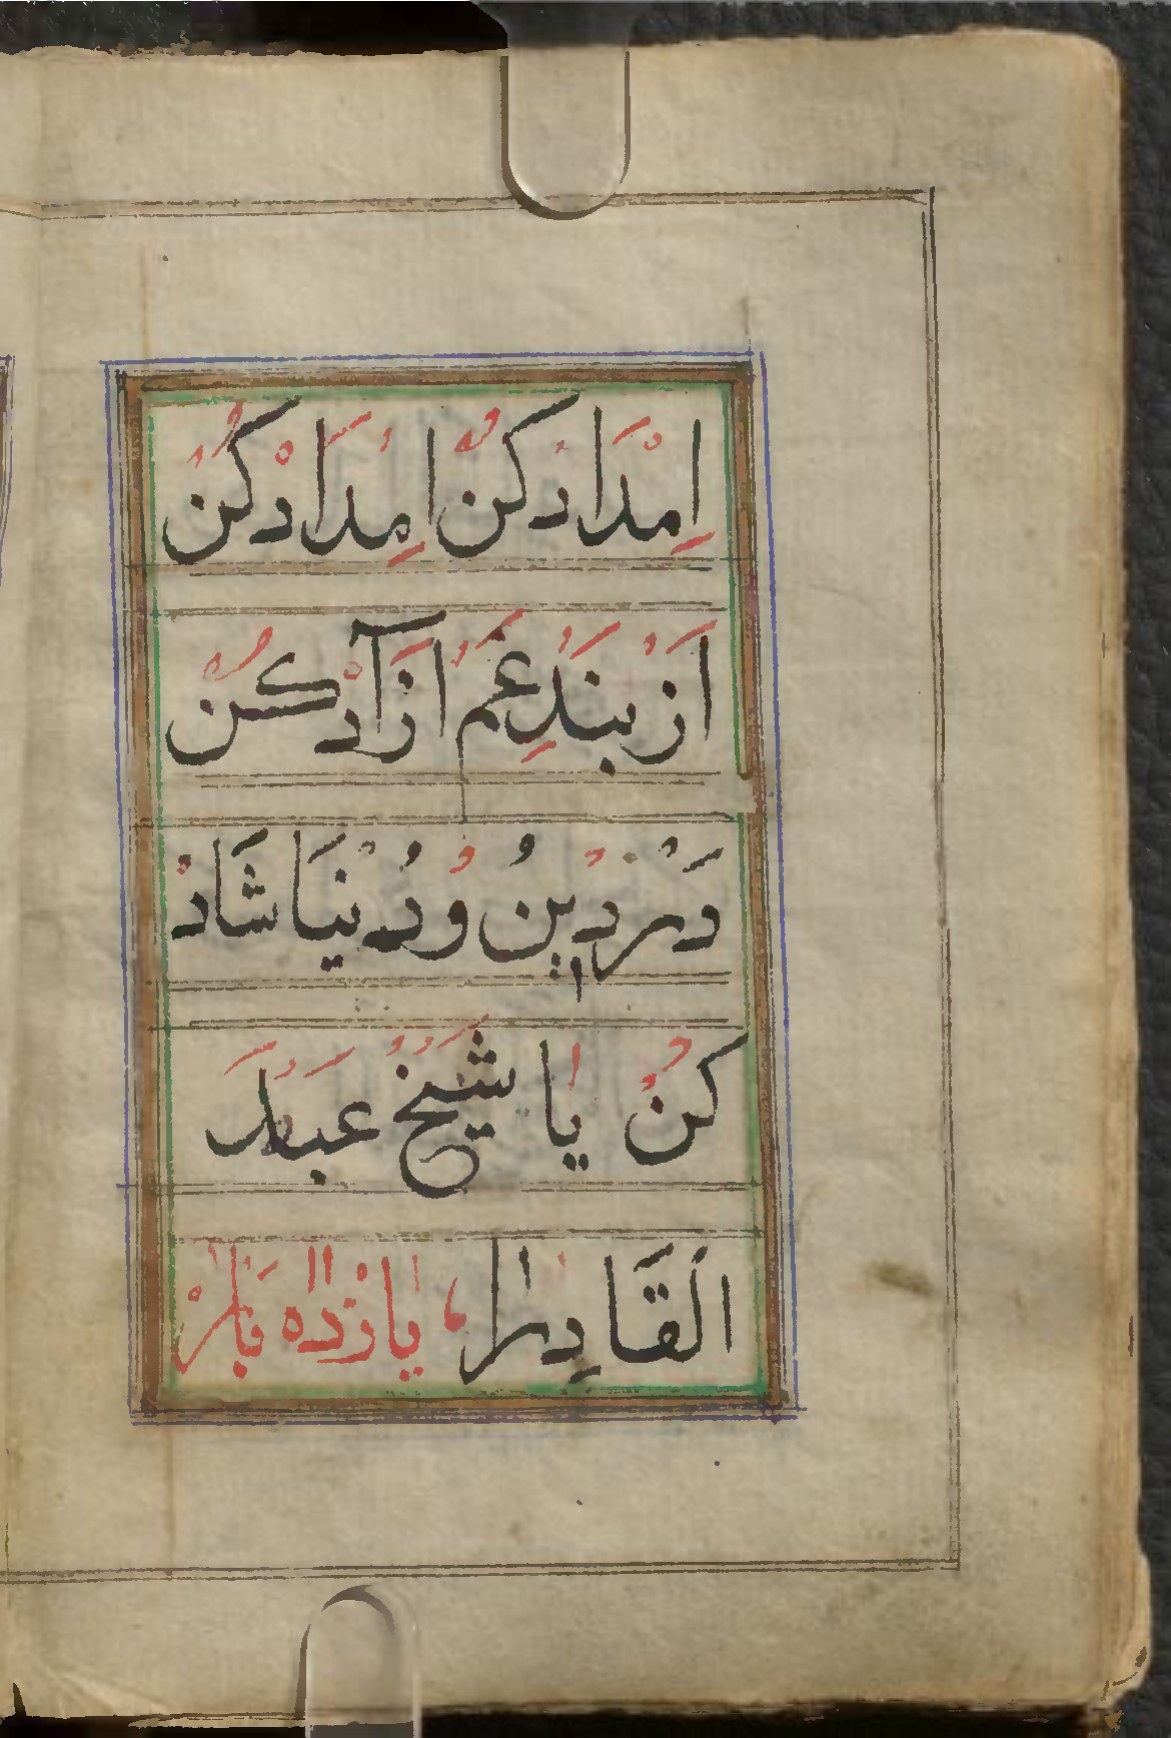 اِمْدَادْ كُنْ اِمْدَادْ كُنْ
اَزْ بَنْدِ غَمْ ازَآدْ كُنْ
دَرْ دِيْن وُ دُنْيَا شَادْ
كُنْ يَا شَيْخْ عَبْدَ
الْقَادِرَا يَازْدَه بَارْ